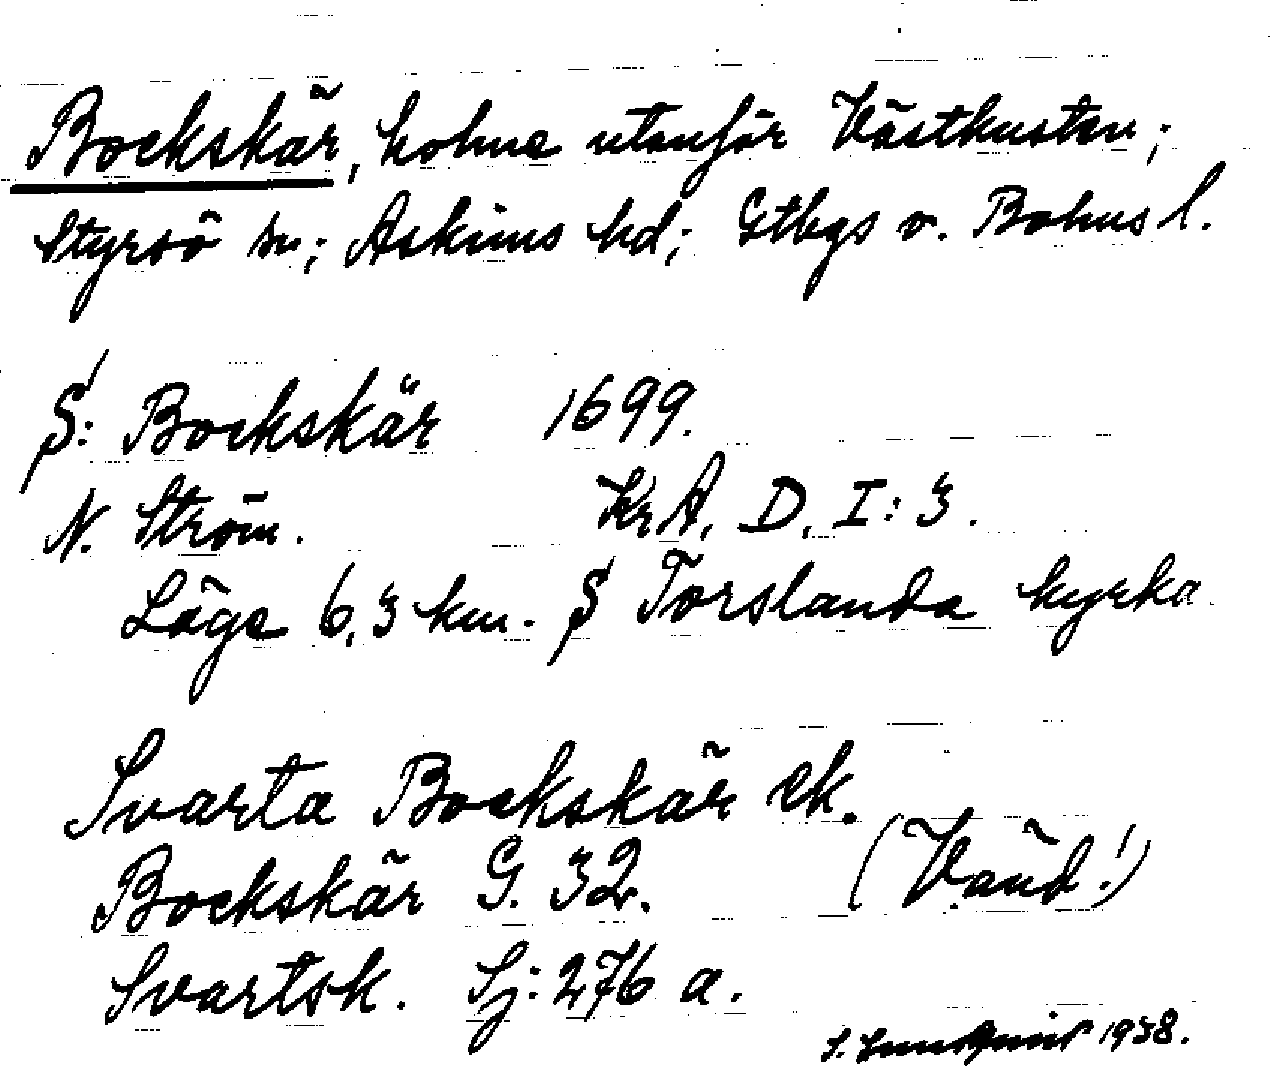 Bockskär, holme utanför Västkusten;
Styrsö sn; Askims hd; Gtbgs o. Bohus l.
S: Bockskär 1699.
N. Ström. KrA, D, I: 3.
Läge 6,3 km. S Torslanda kyrka
Svarta Bockskär ek.
Bockskär G. 32. (Vänd!)
Svartsk. Sj: 276 a.
S. Lundquist 1938.